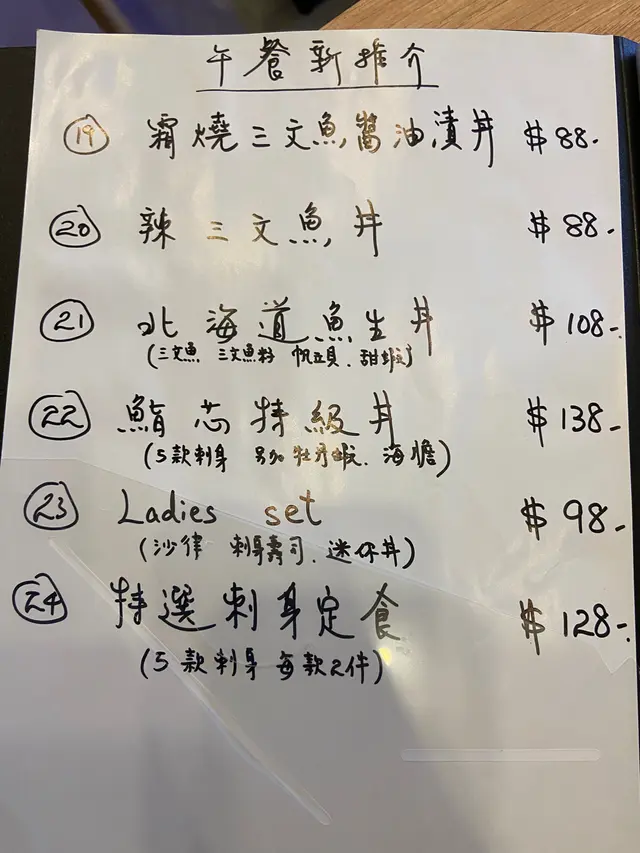 午餐新推介
19 霜燒三文魚醬油漬丼 $88.-
20 辣三文魚丼 $88.-
21 北海道魚生丼 $108-
(三文魚 三文魚籽 帆立貝．甜蝦)
22 鮨芯特級丼 $138-
(5款刺身 另加牡丹蝦．海膽)
23 Ladies set $98-
(沙律 刺身壽司．迷你丼)
24 特選刺身定食 $128-
(5款刺身 每款2件)